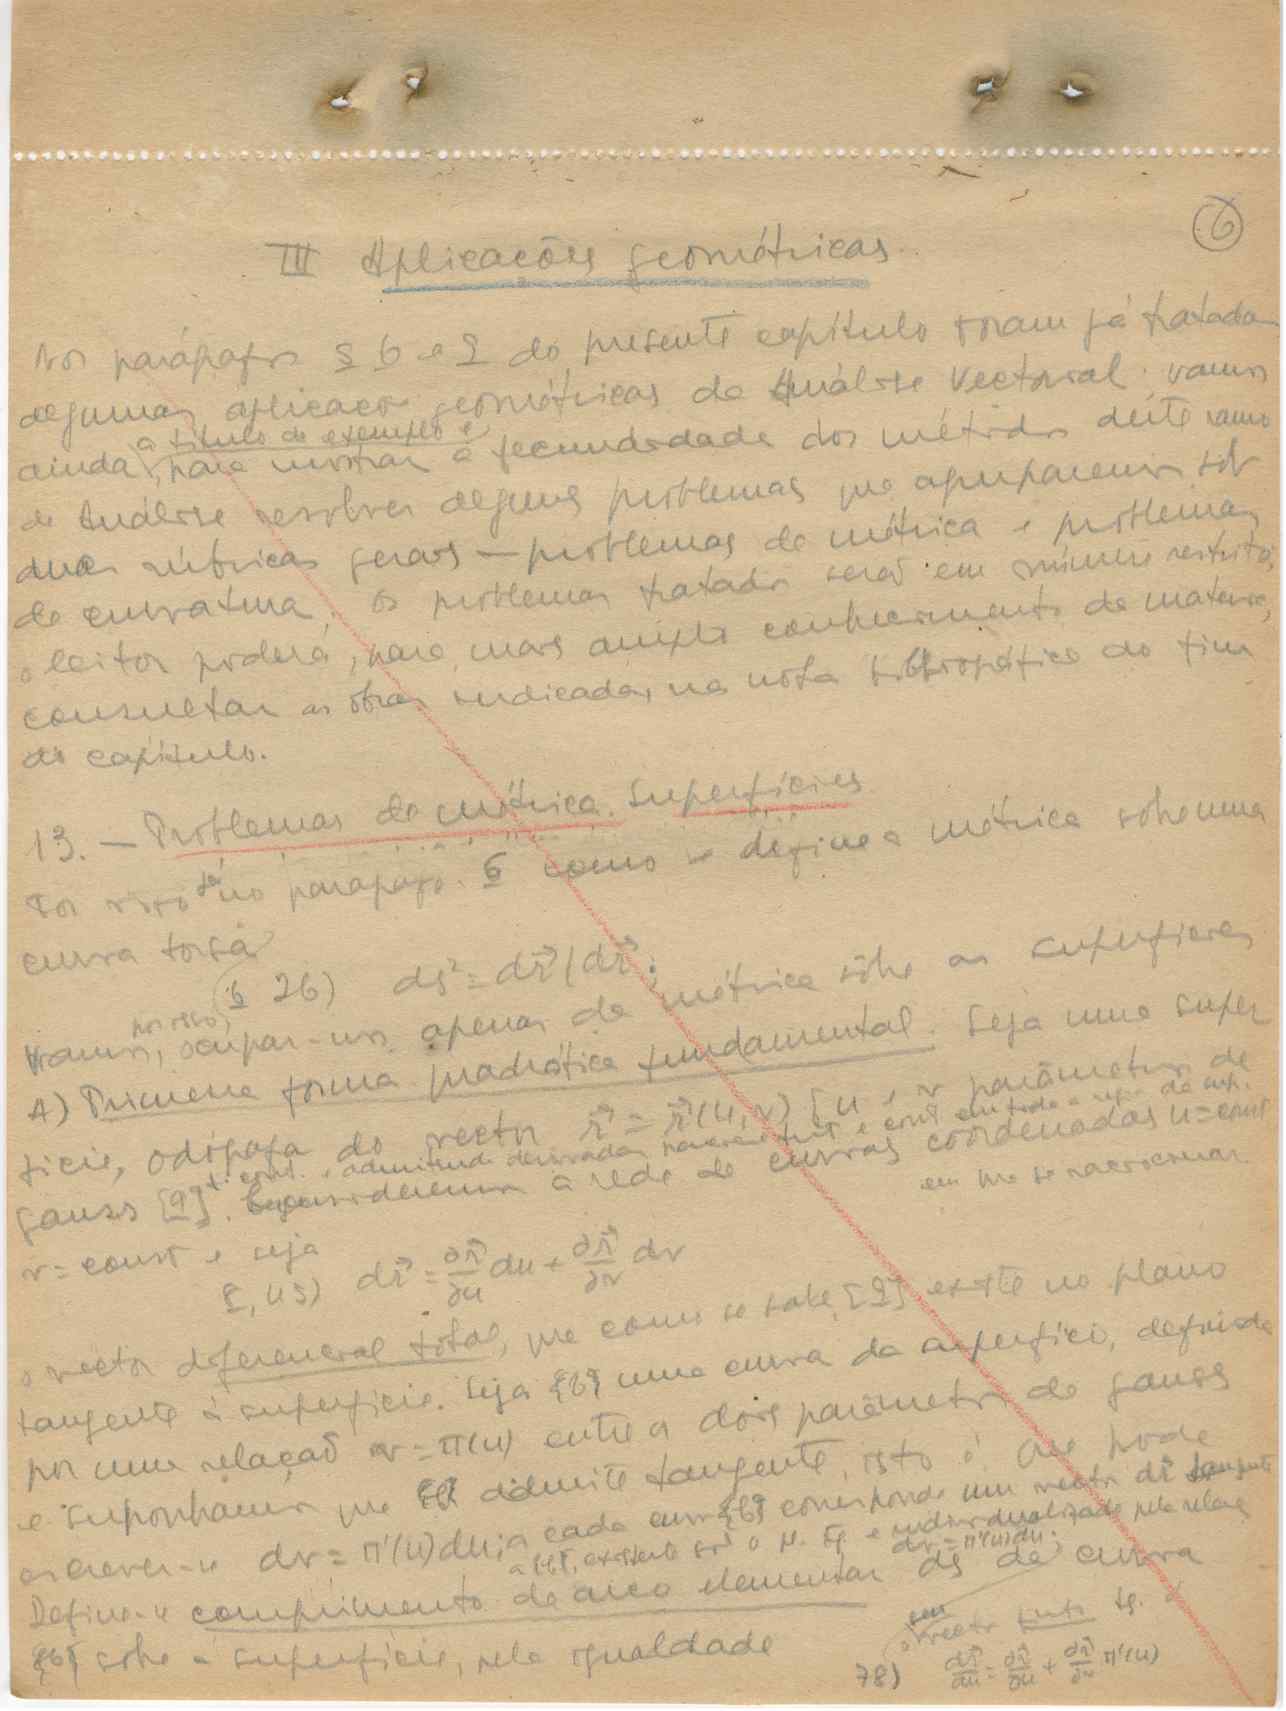 6
III Aplicações geométricas.
Nos parágrafos § 6 e 9 do presente capítulo foram já tratadas
algumas aplicações geométricas da Análise Vectorial. Vamos
ainda, a título de exemplo e para mostrar a fecundidade dos métodos dêste ramo
da Análise resolver alguns problemas que agruparemos sob
duas rúbricas gerais — problemas de métrica e problemas
de curvatura. Os problemas tratados serão em número restrito,
o leitor poderá, para mais amplo conhecimento da matéria,
consultar as obras indicadas na nota bibliográfica do fim
do capítulo.
13. — Problemas de métrica. Superfícies.
Foi visto já no parágrafo 6 como se define a métrica sôbre uma
curva torsa
(6 26) ds² = dr⃗ | dr⃗ ;
Vamos, por isso, ocupar-nos apenas da métrica sôbre as superfícies
A) Primeira forma quadrática fundamental. Seja uma super
fície, odógrafa do vector r⃗ = r⃗(u, v) [u e v parâmetros de
cont. e admitindo derivadas cont em toda a região da sup.
gauss [9]. Consideremos a rede de curvas coordenadas u = const
em que se raciocinar
v = const e seja
9, 45) dr⃗ = ∂r⃗/∂u du + ∂r⃗/∂v dv
o vector diferencial total, que como se sabe, [9] existe no plano
tangente à superfície. Seja {b} uma curva da superfície, definida
por uma relação v = π(u) entre os dois parâmetros de gauss
e suponhamos que {b} admite tangente, isto é que pode
escrever-se dv = π'(u)du; a cada curva {b} corresponde um vector dr⃗ tangente
a {b}, existente sôb o p. tg. e individualizado pela relação dv = π'(u)du.
Define-se comprimento de arco elementar ds da curva
{b} sôbre a superfície, pela igualdade
o seu vector tg. é
78) dr⃗/du = ∂r⃗/∂u + ∂r⃗/∂v π'(u)